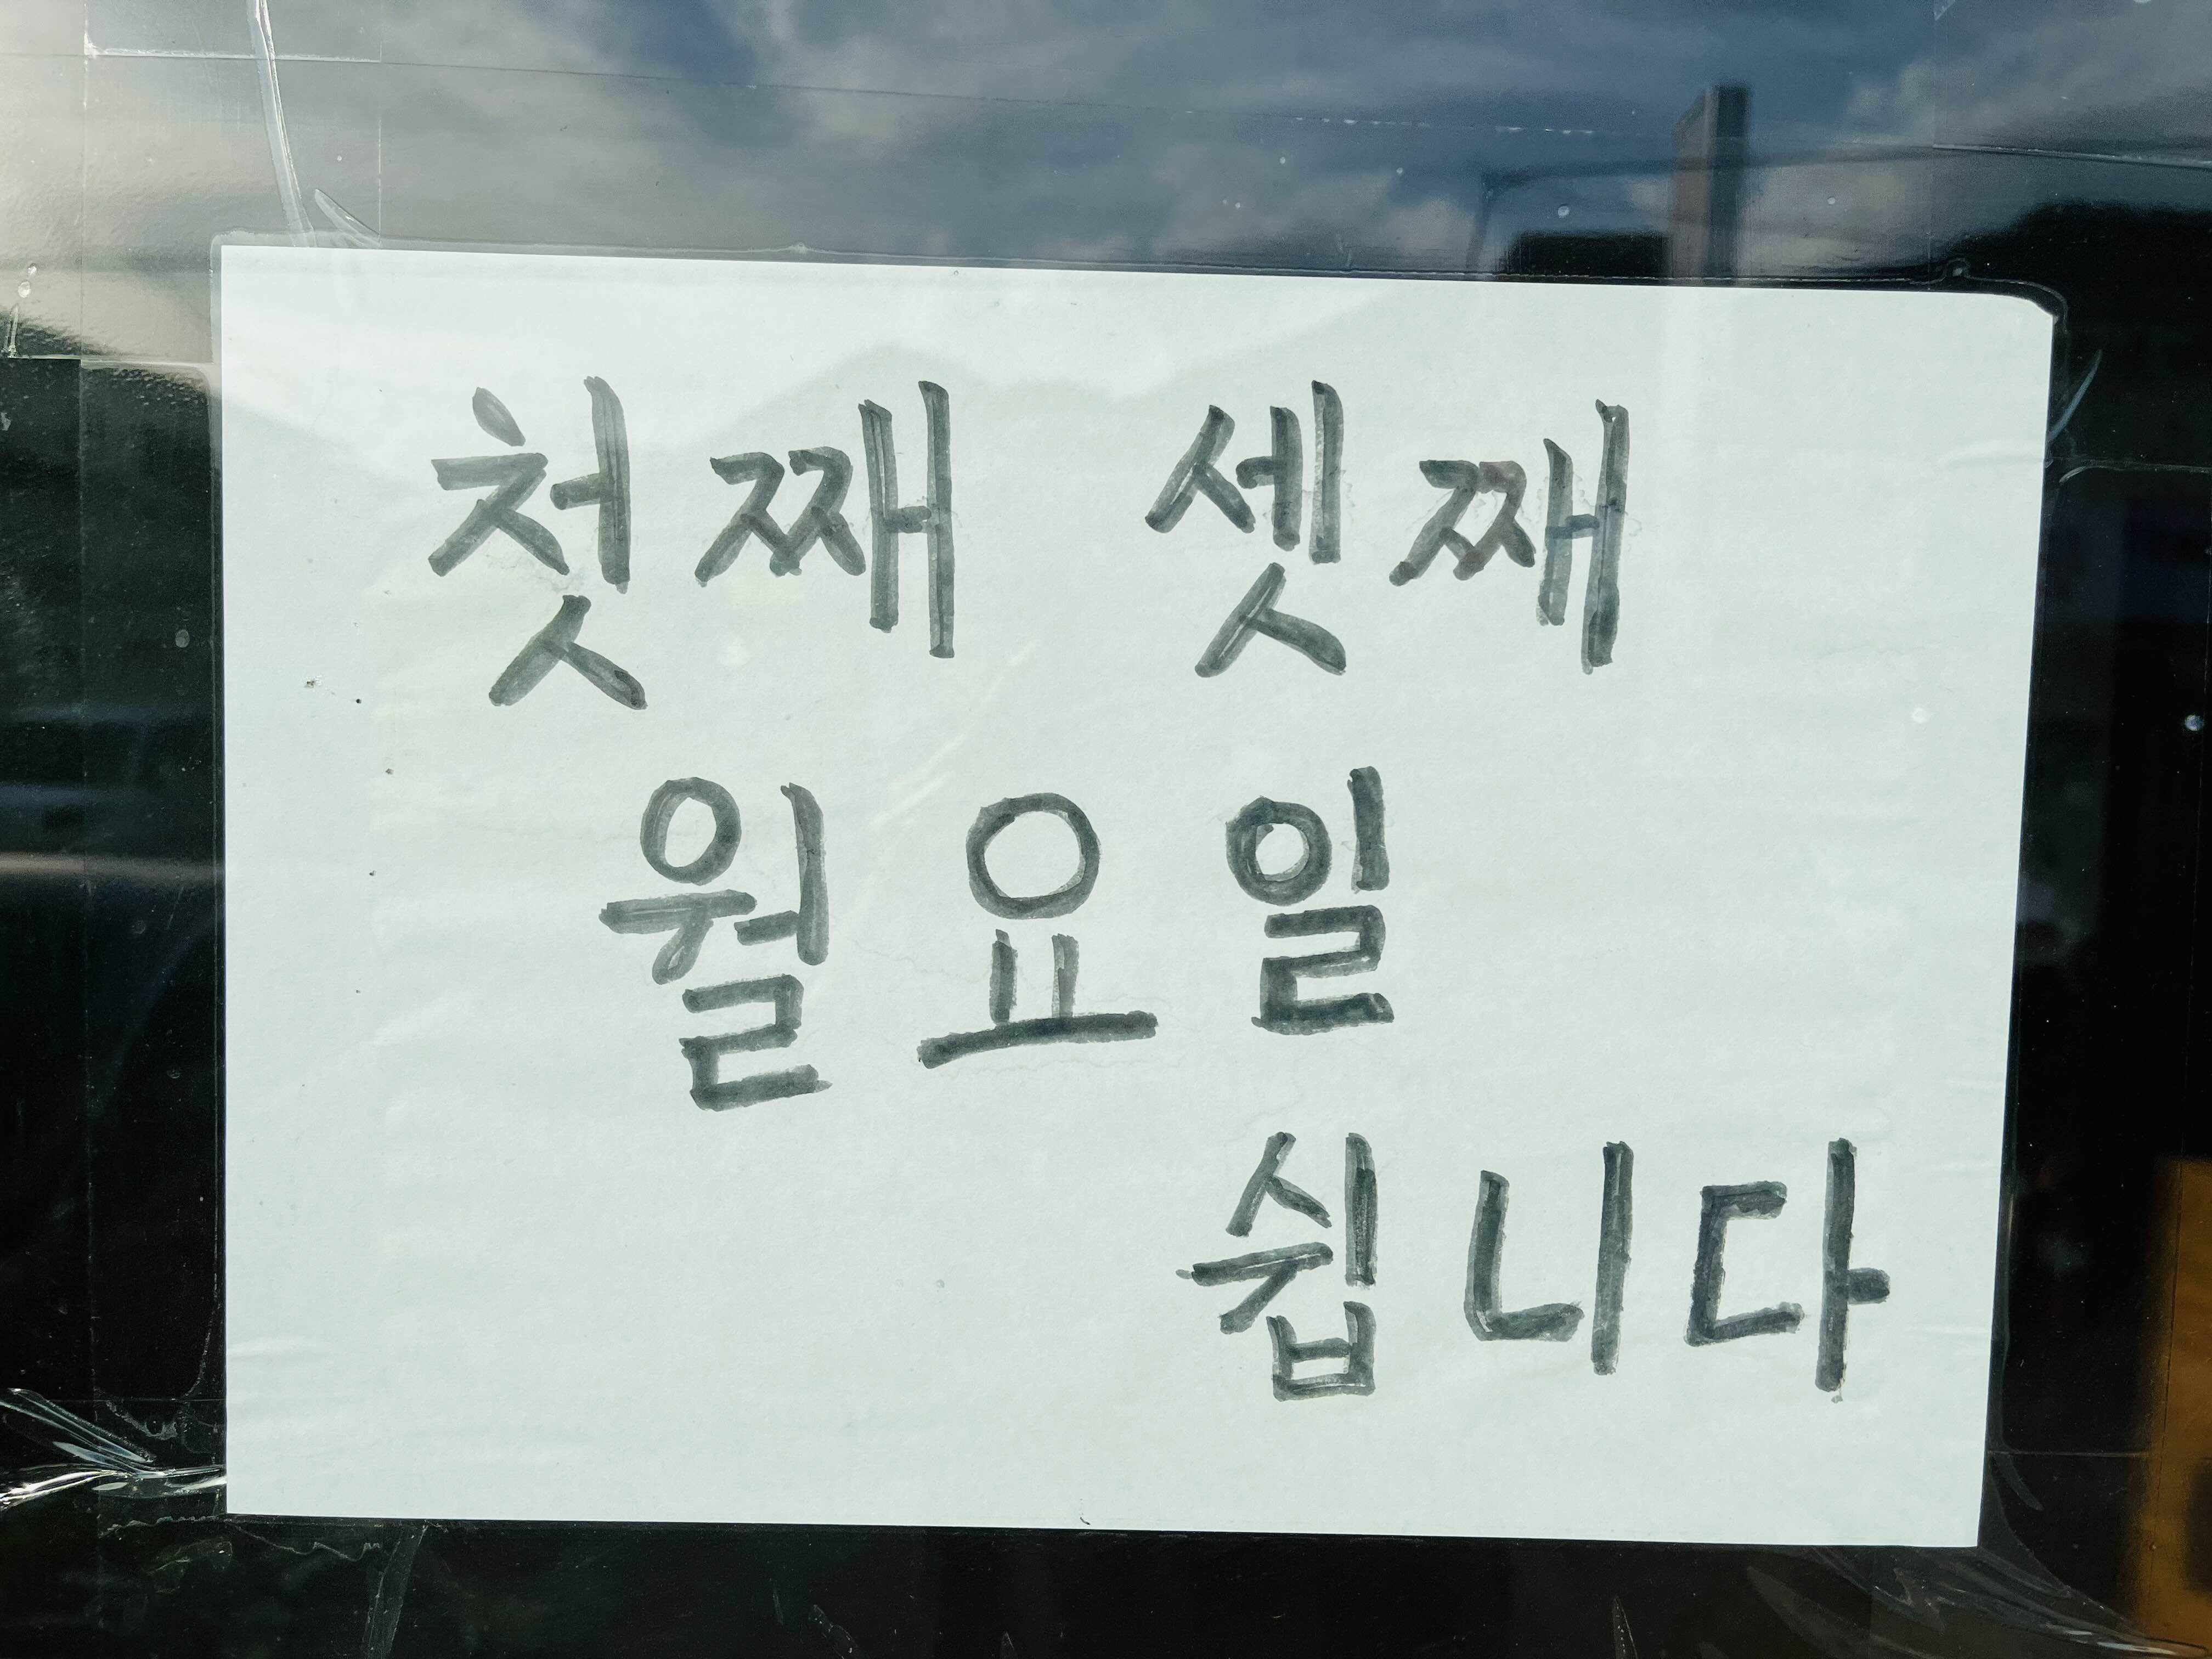 첫째 셋째
월요일
쉽니다